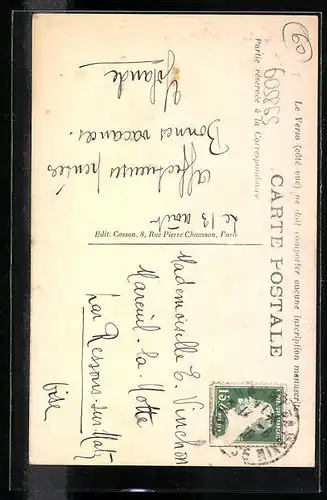 60
Le Verso (côté vue) ne doit comporter aucune inscription manuscrite
CARTE POSTALE
Partie réservée à la Correspondance
598509
Le 13 août
Affectueuses pensées
Bonnes vacances.
Yolande
Edit. Cosson, 8, Rue Pierre Chausson, Paris
Mademoiselle E. Vinchon
Mareuil-la-Motte
par Ressons-sur-Matz
Oise
15c